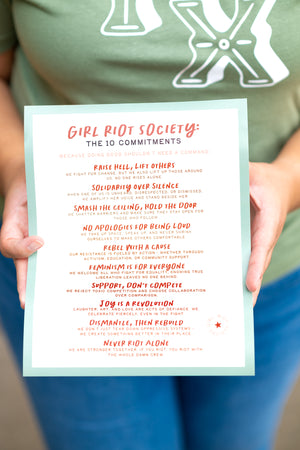 GIRL RIOT SOCIETY:
THE 10 COMMITMENTS
BECAUSE DOING GOOD SHOULDN'T NEED A COMMAND
RAISE HELL, LIFT OTHERS
WE FIGHT FOR CHANGE, BUT WE ALSO LIFT UP THOSE AROUND
US. NO ONE RISES ALONE.
SOLIDARITY OVER SILENCE
WHEN ONE OF US IS UNHEARD, DISRESPECTED, OR DISMISSED,
WE AMPLIFY HER VOICE AND STAND BESIDE HER.
SMASH THE CEILING, HOLD THE DOOR
WE SHATTER BARRIERS AND MAKE SURE THEY STAY OPEN FOR
THOSE WHO FOLLOW.
NO APOLOGIES FOR BEING LOUD
WE TAKE UP SPACE, SPEAK UP, AND NEVER SHRINK
OURSELVES TO MAKE OTHERS COMFORTABLE.
REBEL WITH A CAUSE
OUR RESISTANCE IS FUELED BY ACTION, WHETHER THROUGH
ACTIVISM, EDUCATION, OR COMMUNITY SUPPORT.
FEMINISM IS FOR EVERYONE
WE WELCOME ALL WHO FIGHT FOR EQUALITY, ENSURING TRUE
LIBERATION LEAVES NO ONE BEHIND.
SUPPORT, DON'T COMPETE
WE REJECT TOXIC COMPETITION AND CHOOSE COLLABORATION
OVER COMPARISON.
JOY IS A REVOLUTION
LAUGHTER, ART, AND LOVE ARE ACTS OF DEFIANCE. WE
CELEBRATE FIERCELY, EVEN IN THE FIGHT.
DISMANTLE, THEN REBUILD
WE DON'T JUST TEAR DOWN OPPRESSIVE SYSTEMS—
WE CREATE SOMETHING BETTER IN THEIR PLACE.
NEVER RIOT ALONE
WE ARE STRONGER TOGETHER. IF YOU RIOT, YOU RIOT WITH
THE WHOLE DAMN CREW.